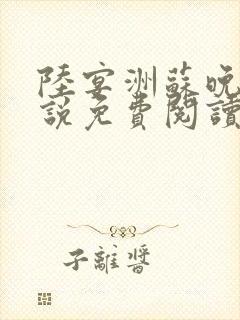 陸宴洲蘇晚
說免費閱讀
子離醬